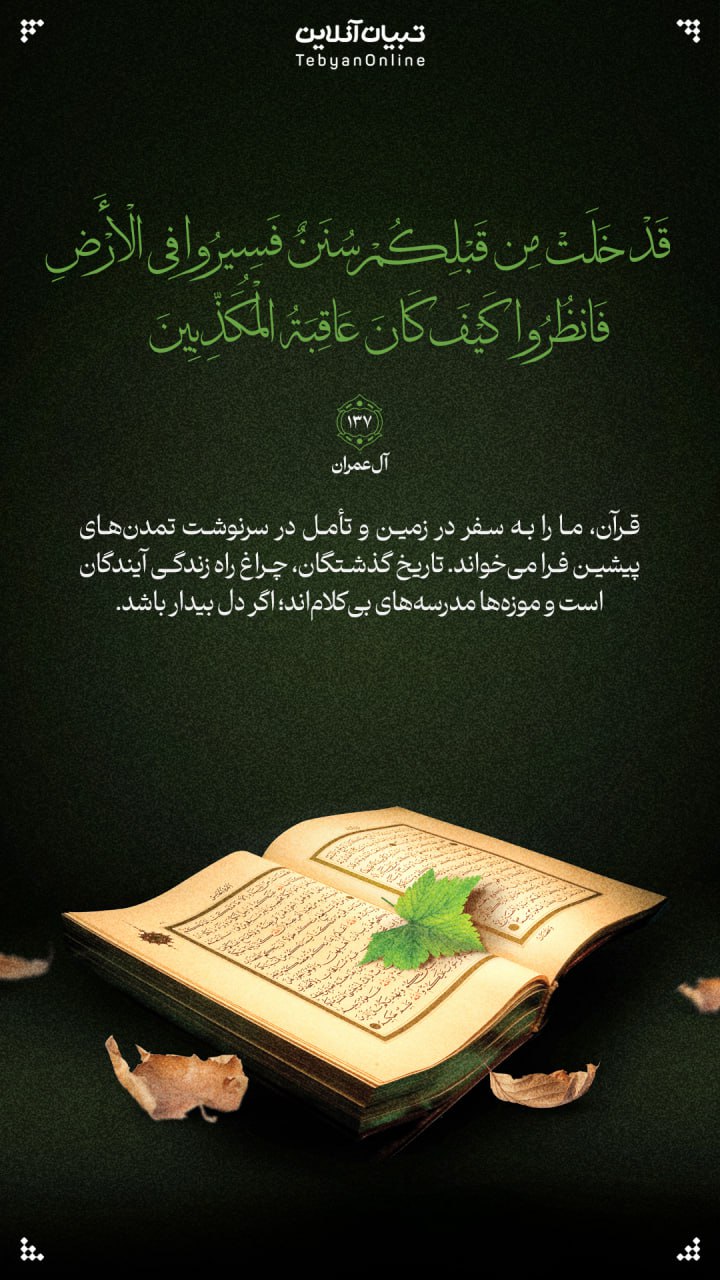 تبیان آنلاین
TebyanOnline
قَدْ خَلَتْ مِن قَبْلِكُمْ سُنَنٌ فَسِيرُوا فِي الْأَرْضِ
فَانظُرُوا كَيْفَ كَانَ عَاقِبَةُ الْمُكَذِّبِينَ
۱۳۷
آل‌عمران
قرآن، ما را به سفر در زمین و تأمل در سرنوشت تمدن‌های
پیشین فرا می‌خواند. تاریخ گذشتگان، چراغ راه زندگی آیندگان
است و موزه‌ها مدرسه‌های بی‌کلام‌اند؛ اگر دل بیدار باشد.